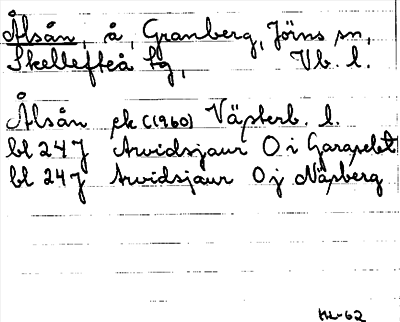 Ålsån, å, Granberg, Jörns sn,
Skellefteå tg, Vb. l.
Ålsån ek (1960) Västerb. l.
bl 24 J Arvidsjaur 0 i Garaselet
bl 24 J Arvidsjaur 0 j Näsberg
HL-62